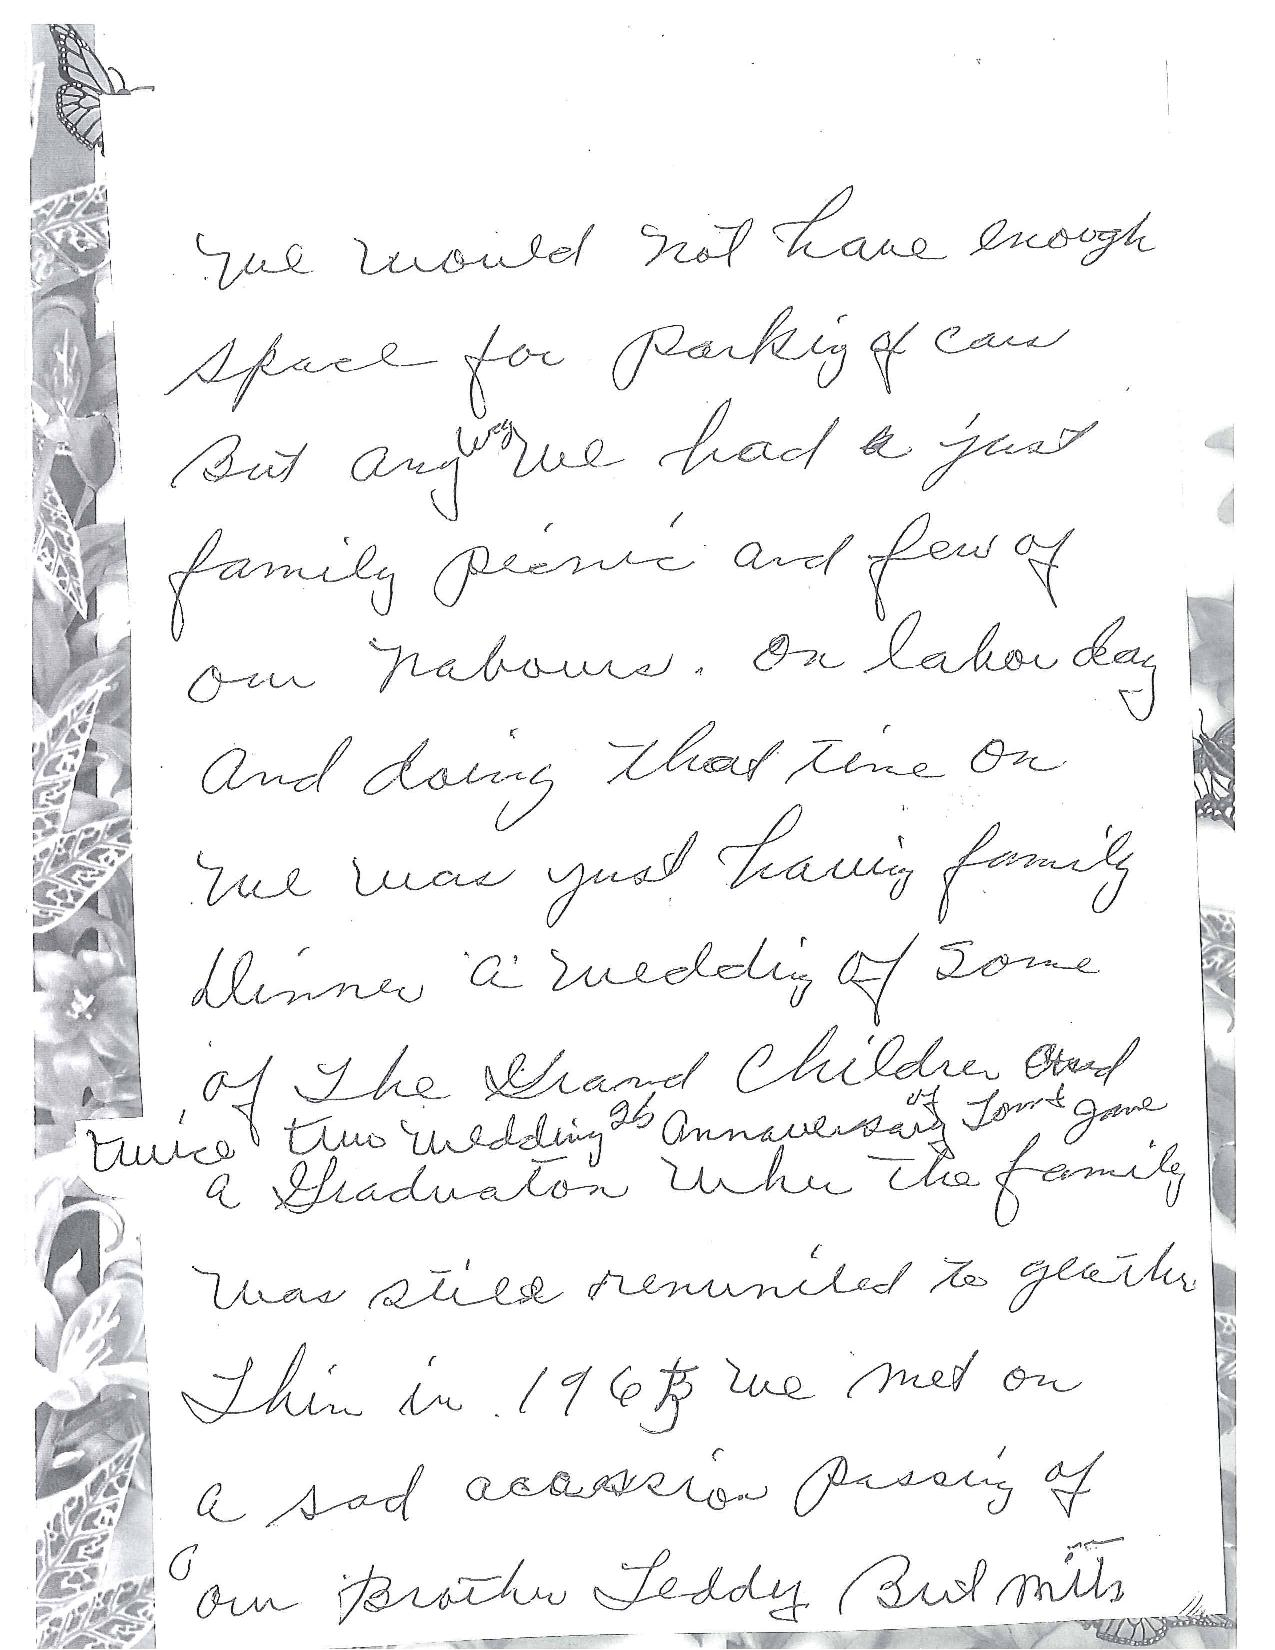 we would not have enough
space for parkig of cars
But any way we had a just
family picnic and few of
our nabours. on labor day
And doing that time on
we was just having family
Dinner a weddig of some
of the Grand Children and
twice two wedding 25 Annaversary of Tom & Jane
a Graduaton when the family
was still renunited to geather
Then in 196 we met on
a sad acassion passing of
our Brother Teddy But